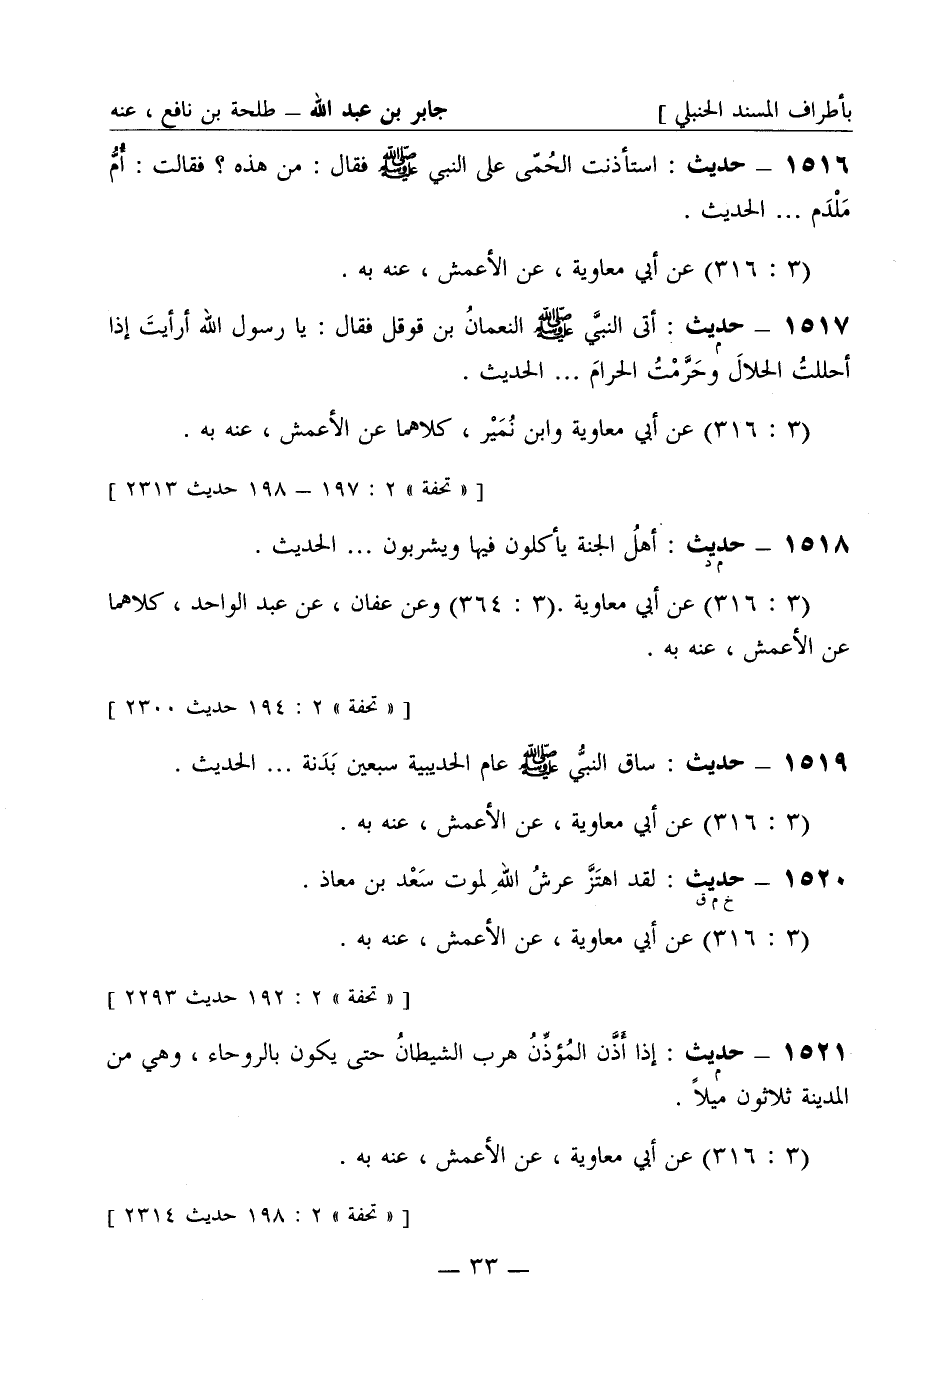 بأطراف المسند الحنبلي ] جابر بن عبد الله ــ طلحة بن نافع ، عنه
١٥١٦ ــ حديث : استأذنت الحُمّى على النبي ﷺ فقال : من هذه ؟ فقالت : أُمُّ
مَلْدَم ... الحديث .
(٣ : ٣١٦) عن أبي معاوية ، عن الأعمش ، عنه به .
١٥١٧ ــ حديث : أتى النبيَّ ﷺ النعمانُ بن قوقل فقال : يا رسول الله أرأيتَ إذا
م
أحللتُ الحلالَ وحَرَّمْتُ الحرامَ ... الحديث .
(٣ : ٣١٦) عن أبي معاوية وابن نُمَيْر ، كلاهما عن الأعمش ، عنه به .
[ « تحفة » ٢ : ١٩٧ ــ ١٩٨ حديث ٢٣١٣ ]
١٥١٨ ــ حديث : أهلُ الجنة يأكلون فيها ويشربون ... الحديث .
م د
(٣ : ٣١٦) عن أبي معاوية .(٣ : ٣٦٤) وعن عفان ، عن عبد الواحد ، كلاهما
عن الأعمش ، عنه به .
[ « تحفة » ٢ : ١٩٤ حديث ٢٣٠٠ ]
١٥١٩ ــ حديث : ساق النبيُّ ﷺ عام الحديبية سبعين بَدَنة ... الحديث .
(٣ : ٣١٦) عن أبي معاوية ، عن الأعمش ، عنه به .
١٥٢٠ ــ حديث : لقد اهتَزَّ عرشُ اللهِ لموت سَعْد بن معاذ .
خ م ق
(٣ : ٣١٦) عن أبي معاوية ، عن الأعمش ، عنه به .
[ « تحفة » ٢ : ١٩٢ حديث ٢٢٩٣ ]
١٥٢١ ــ حديث : إذا أَذَّن المُؤذِّنُ هرب الشيطانُ حتى يكون بالروحاء ، وهي من
م
المدينة ثلاثون ميلاً .
(٣ : ٣١٦) عن أبي معاوية ، عن الأعمش ، عنه به .
[ « تحفة » ٢ : ١٩٨ حديث ٢٣١٤ ]
ــ ٣٣ ــ